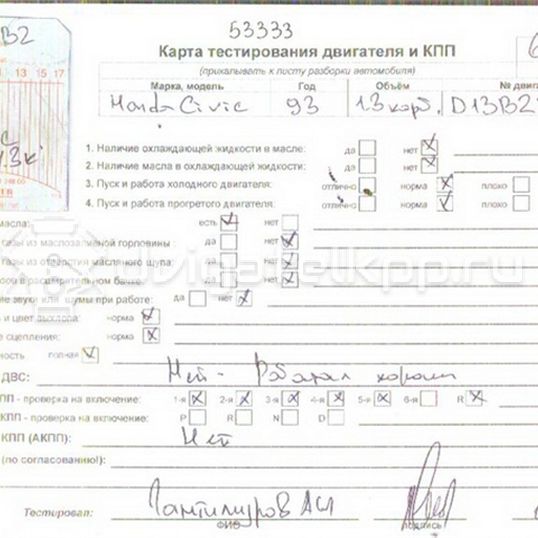 53333
B2
Карта тестирования двигателя и КПП
(прикалывать к листу разборки автомобиля)
11 13 15 17
Марка, модель Год Объём № двига
Honda Civic 93 1.3 карб. D13B2
1. Наличие охлаждающей жидкости в масле: да нет
2. Наличие масла в охлаждающей жидкости: да нет
3. Пуск и работа холодного двигателя: отлично норма плохо
4. Пуск и работа прогретого двигателя: отлично норма плохо
масла: есть нет
газы из маслозаливной горловины да нет
газы из отверстия масляного щупа: да нет
в расширительном бачке: да нет
е звуки или шумы при работе: да нет
и цвет выхлопа: норма
е сцепления: норма
ность полная
ДВС: Нет - Работал хорошо
ПП - проверка на включение: 1-я 2-я 3-я 4-я 5-я 6-я R
КПП - проверка на включение: P R N D
КПП (АКПП): Нет
(по согласованию!):
Тестировал: Пантимуров АИ
ФИО подпись
dvigatelkpp.ru